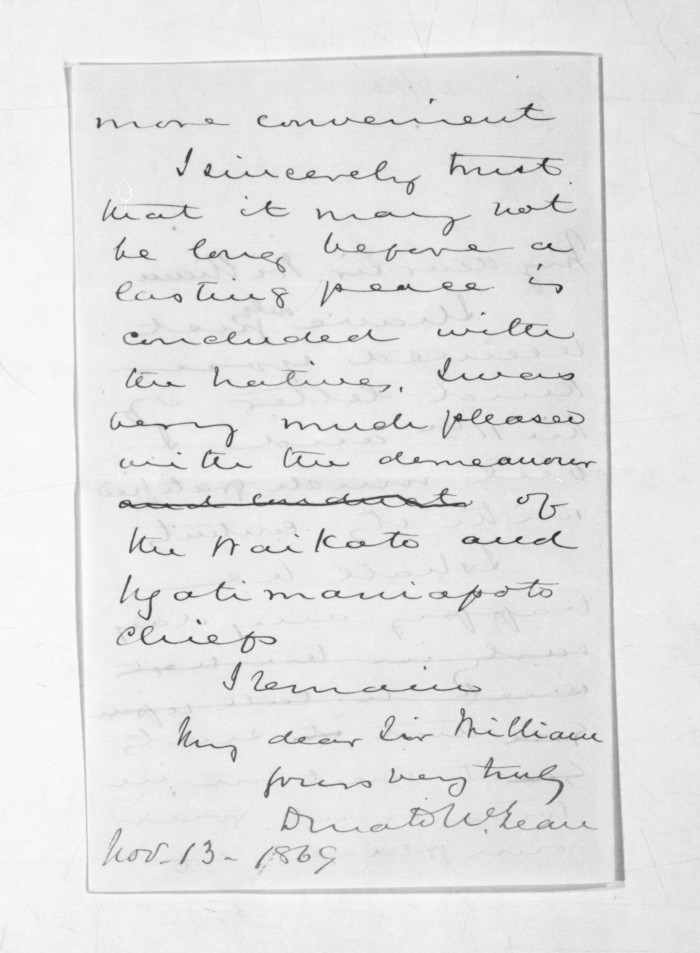 more convenient
I sincerely trust
that it may not
be long before a
lasting peace is
concluded with
the Natives. I was
very much pleased
with the demeanour
and conduct of
the Waikato and
Ngatimaniapoto
Chiefs
I remain
My dear Sir William
yours very truly
Donald McLean
Nov. 13 - 1869